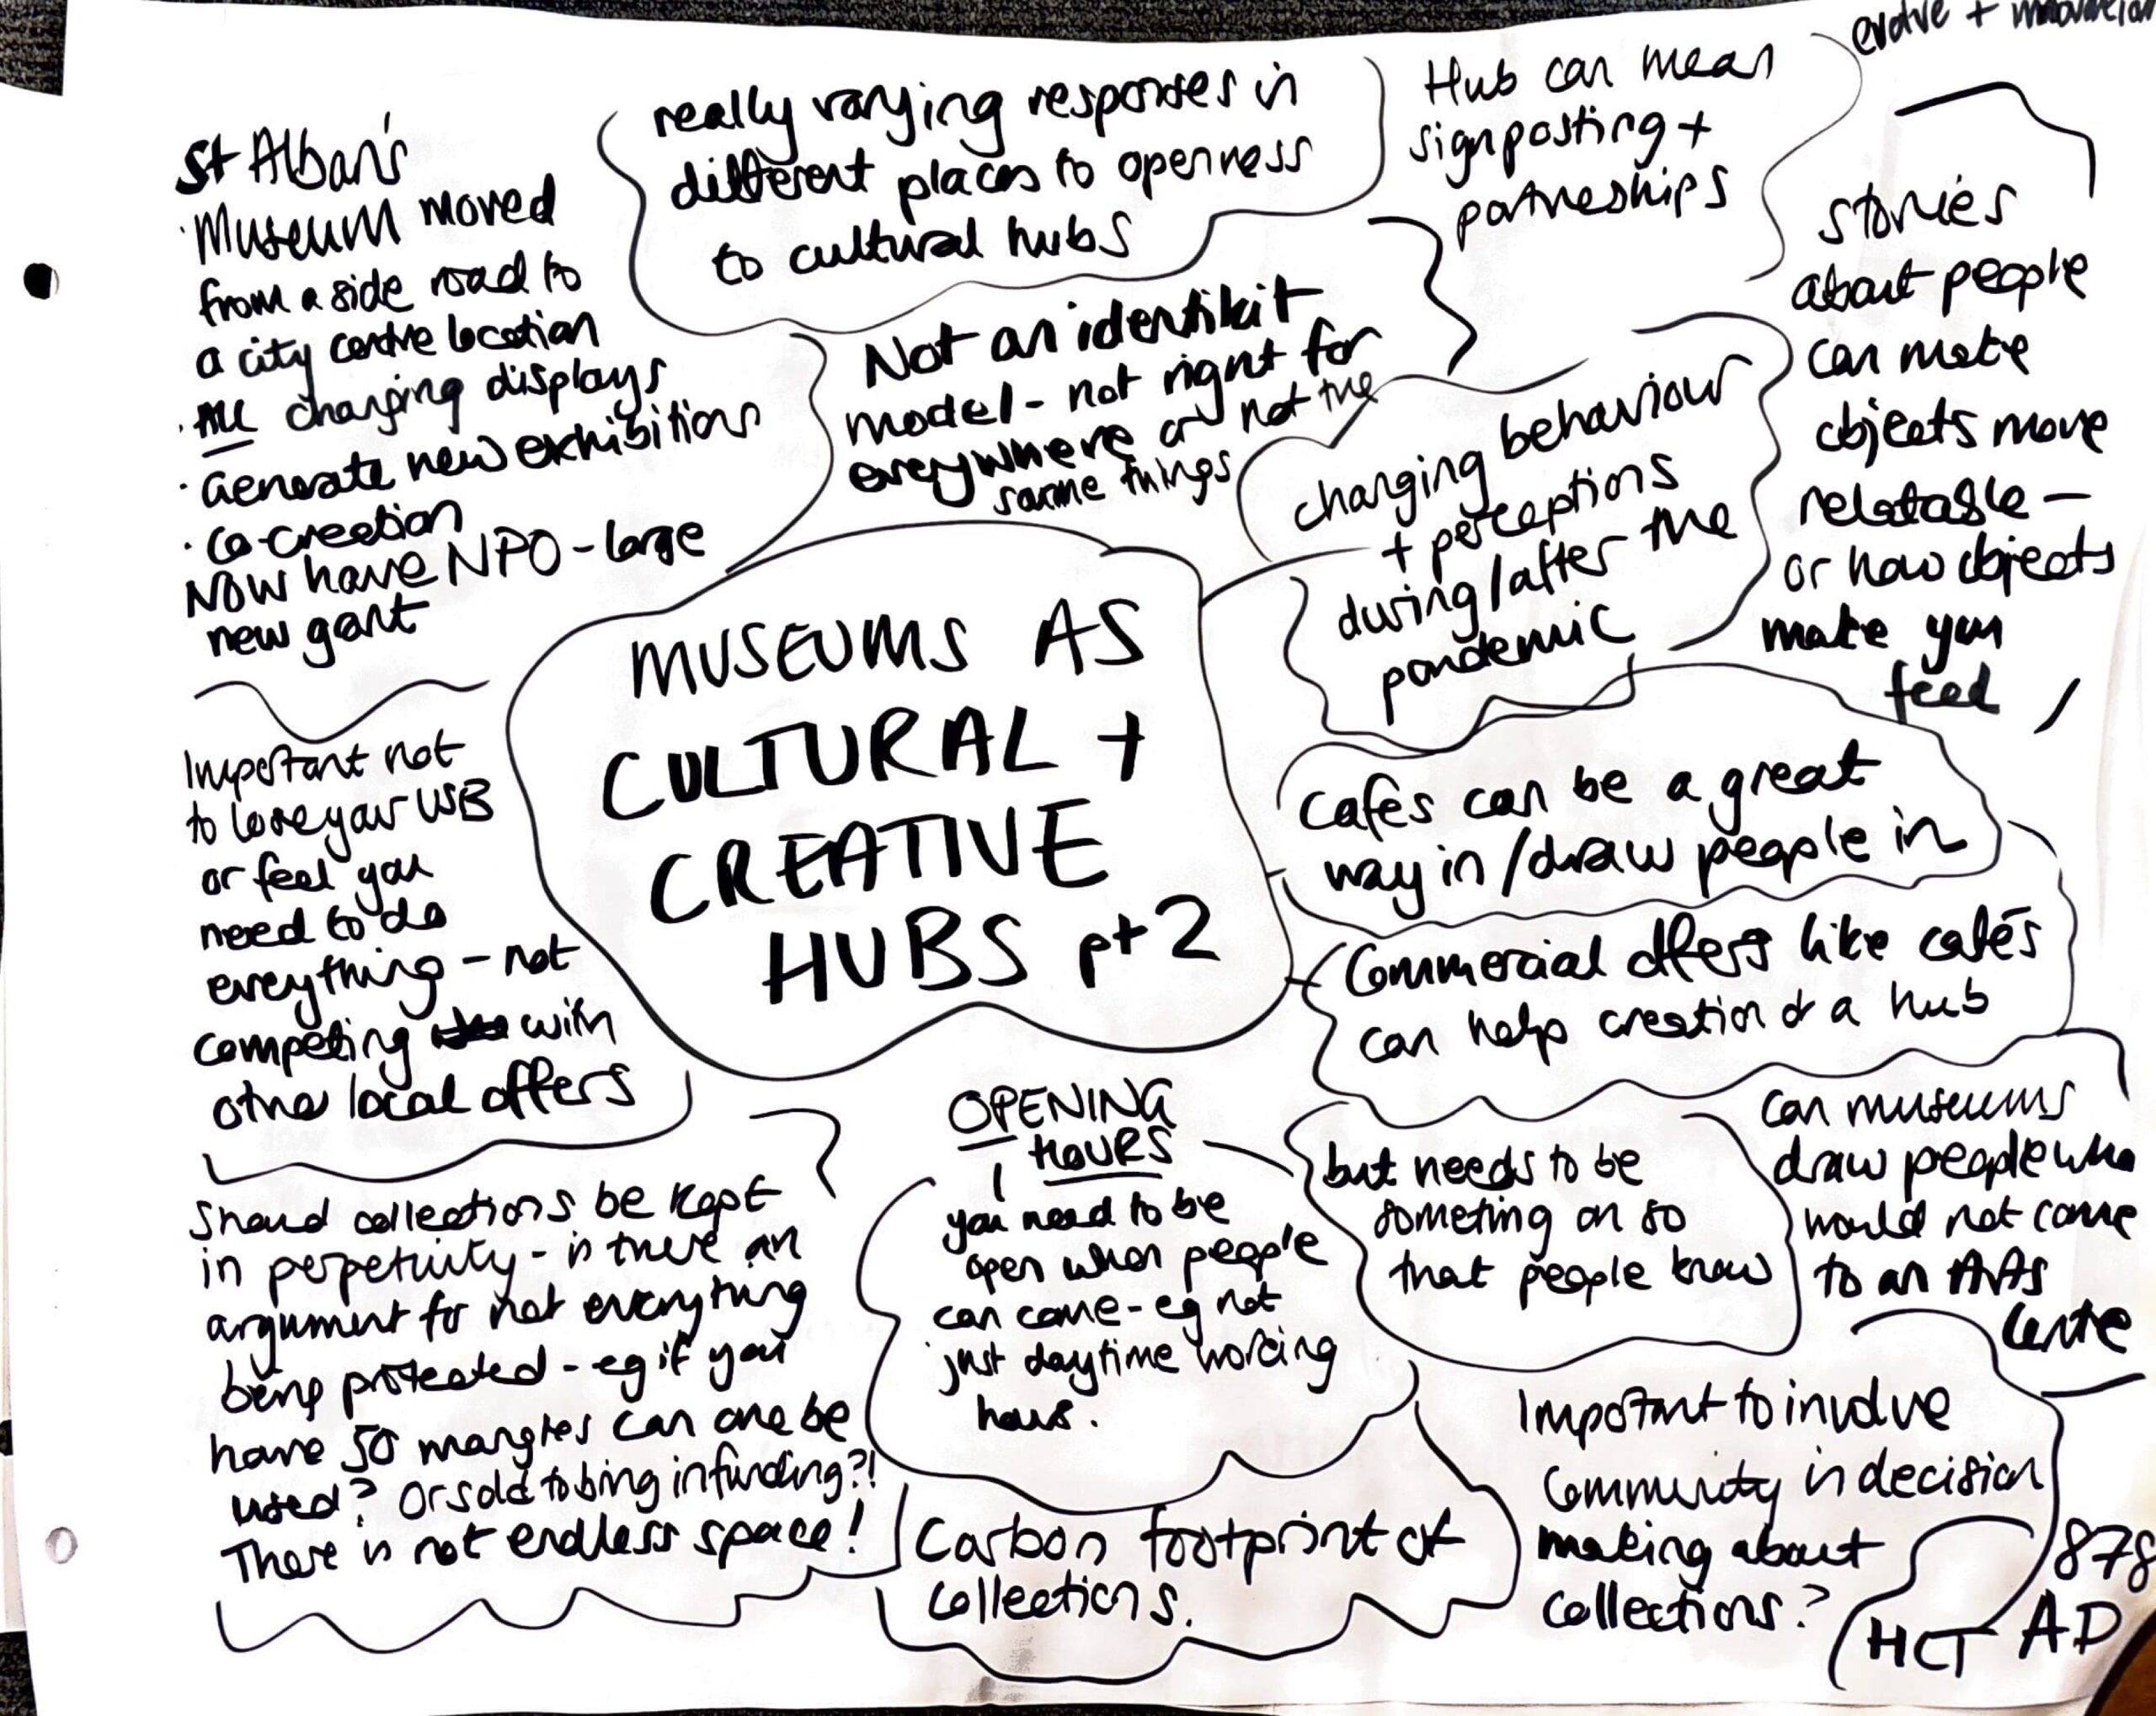 evolve + innovation
St Alban's
· Museum moved
from a side road to
a city centre location
· ALL changing displays
· Generate new exhibitions
· Co-creation
Now have NPO - large
new gant
really varying responses in
different places to openness
to cultural hubs
Hub can mean
signposting +
partneships
Not an identikit
model - not right for
everywhere or not the
same things
changing behaviour
+ perceptions
during / after the
pandemic
stories
about people
can make
objects more
relatable -
or how objects
make you
feel
MUSEUMS AS
CULTURAL +
CREATIVE
HUBS pt 2
Important not
to lose your USB
or feel you
need to do
everything - not
competing with
other local offers
Cafés can be a great
way in / draw people in
Commercial offers like cafés
can help creation of a hub
but needs to be
someting on so
that people know
can museums
draw people who
would not come
to an Arts
Centre
OPENING
HOURS
you need to be
open when people
can come - eg not
just daytime working
hours.
Shoud collections be kept
in perpetuity - is there an
argument for not everything
being protected - eg if you
have 50 mangles can one be
used? Or sold to bring in funding?!
There is not endless space!
Carbon footprint of
collections.
Important to involve
Community in decision
making about
collections?
HCT
878
AD